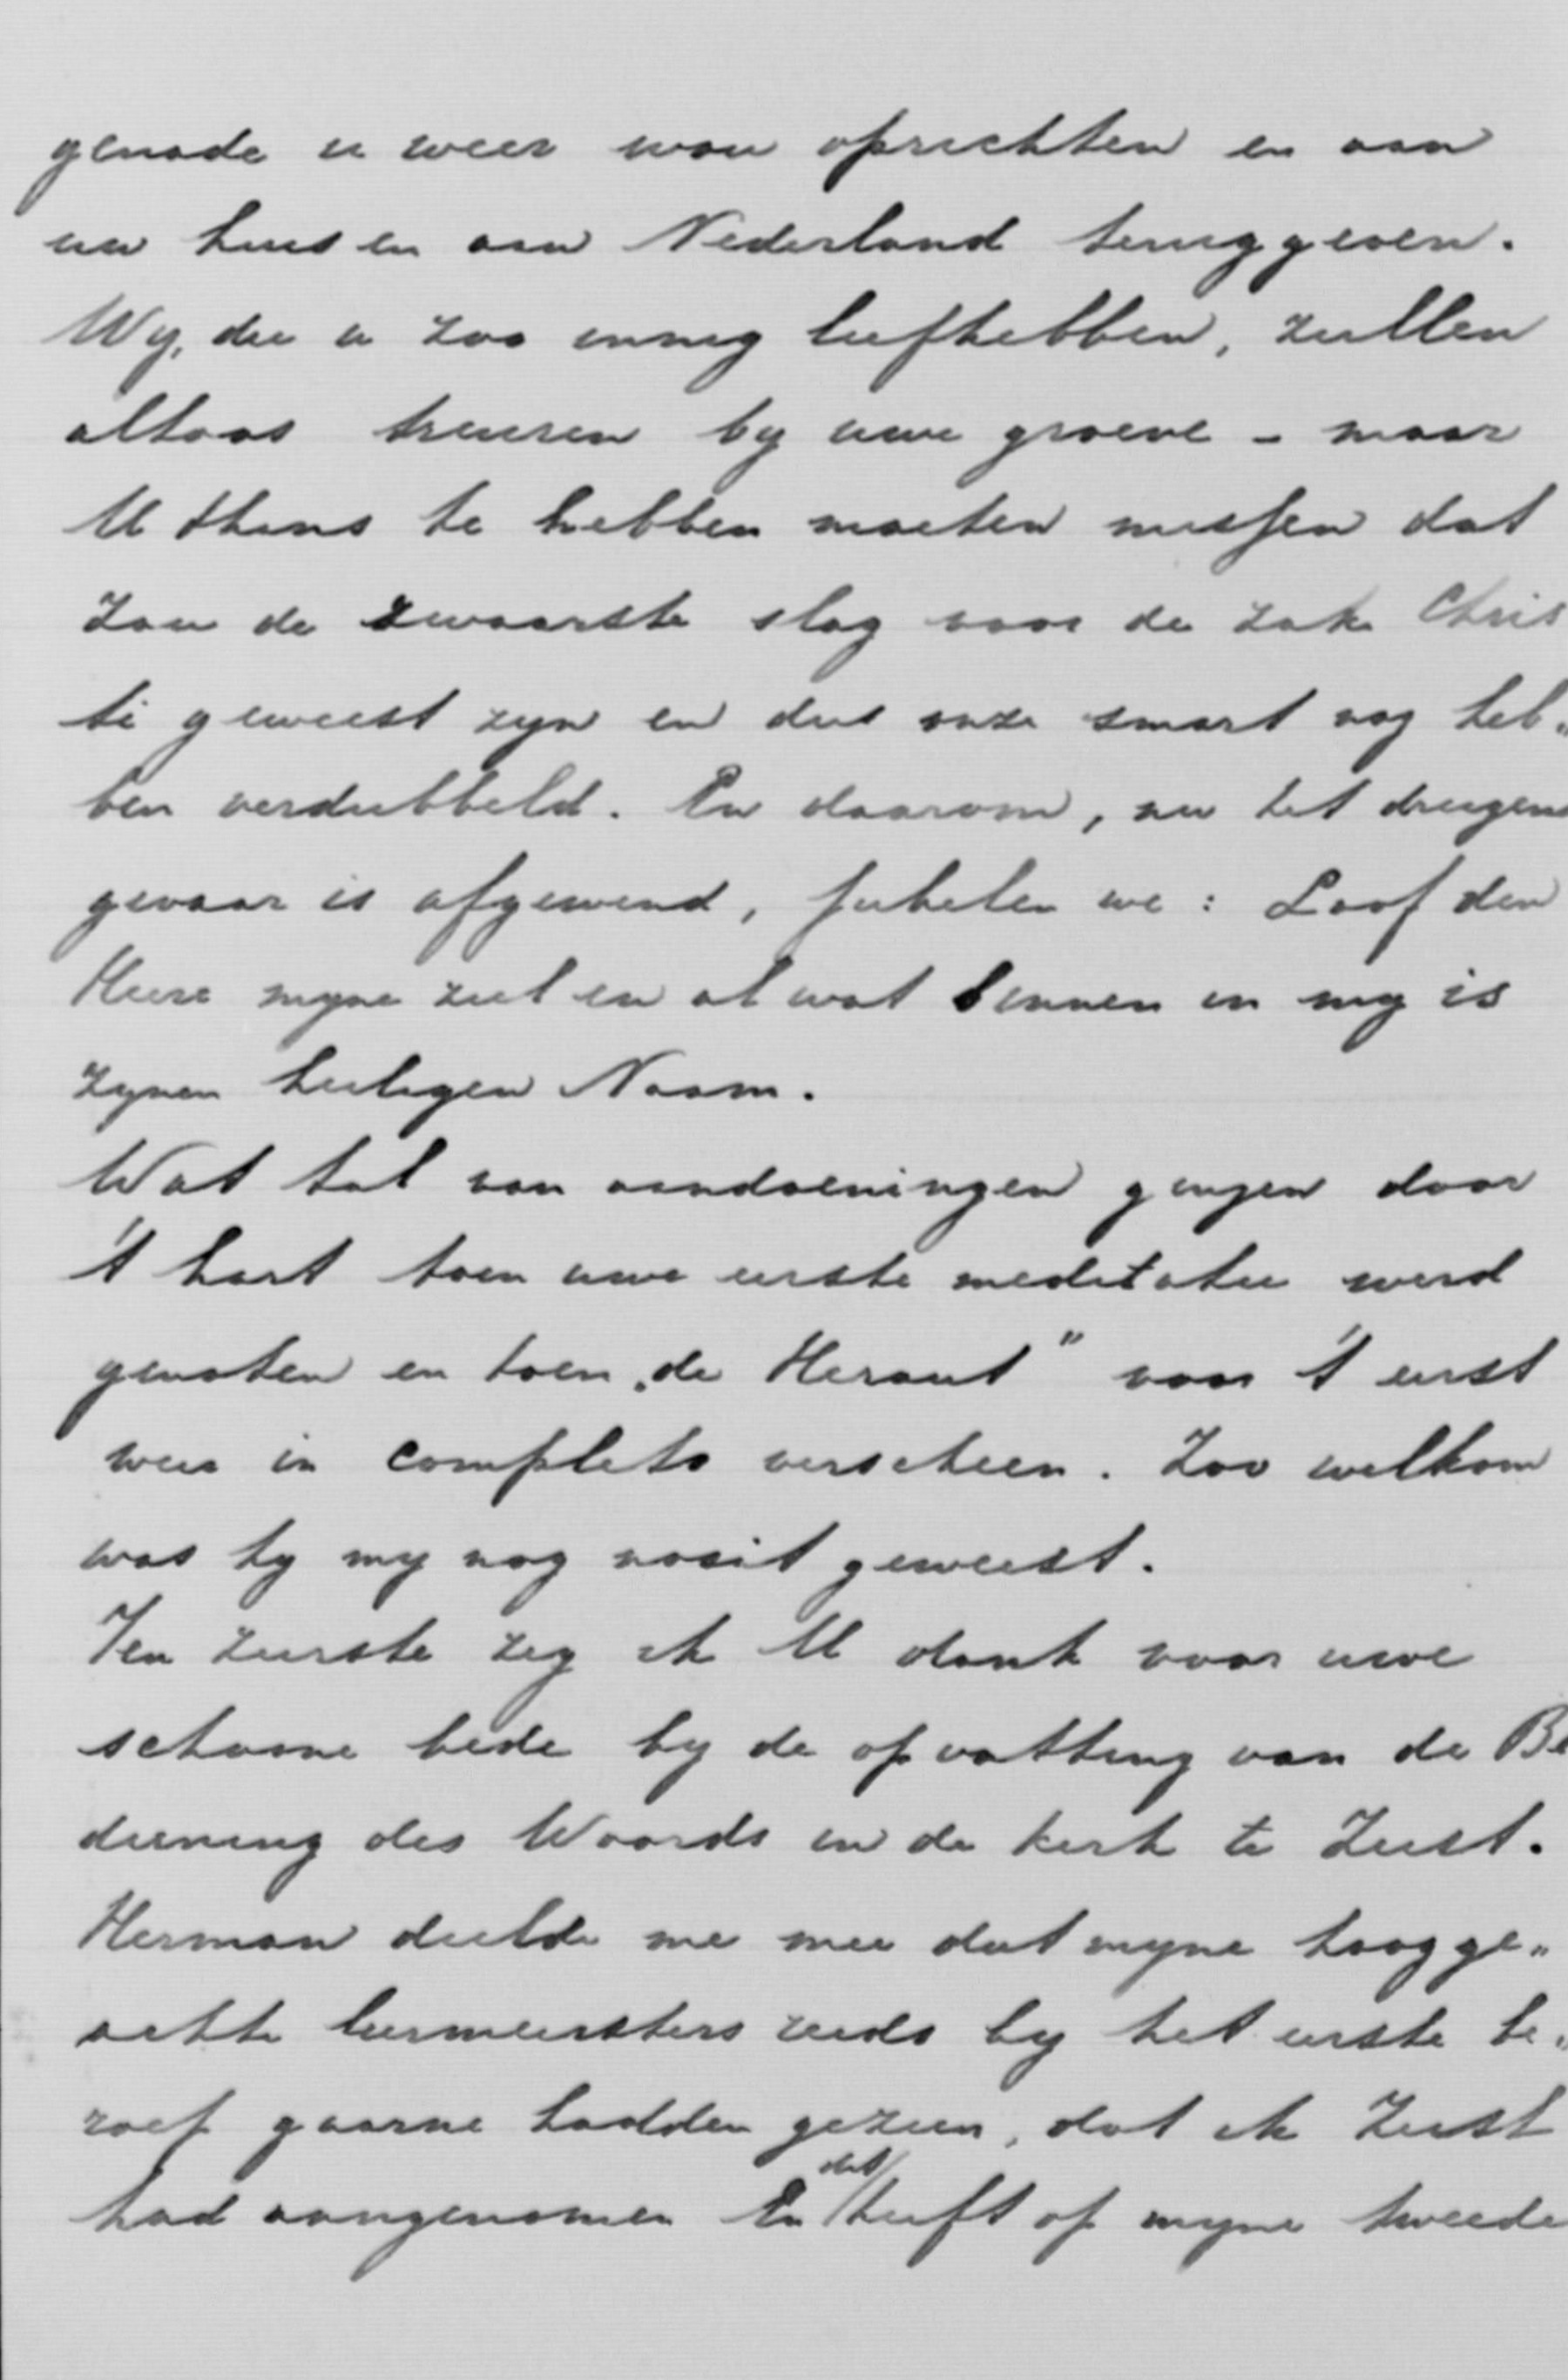 genade u weer wou oprichten en aan
uw huis en aan Nederland teruggeven.
Wy, die u zoo innig liefhebben, zullen
altoos treuren by uwe groeve – maar
U thans te hebben moeten missen dat
zou de zwaarste slag voor de zake Chris
ti geweest zyn en dus onze smart nog heb„
ben verdubbeld. En daarom, nu het dreigend
gevaar is afgewend, jubelen we: Loof den
Heere myne ziel en al wat binnen in my is
zynen heiligen Naam.
Wat tal van aandoeningen gingen door
't hart toen uwe eerste meditatie werd
genoten en toen „de Heraut" voor 't eerst
weer in completo verscheen. Zoo welkom
was hy my nog nooit geweest.
Ten zeerste zeg ik U dank voor uwe
schoone bede by de opvatting van de Be
diening des Woords in de kerk te Zeist.
Herman deelde me mee dat myne hoogge„
achte leermeesters reeds by het eerste be„
roep gaarne hadden gezien, dat ik Zeist
had aangenomen En dat heeft op myne tweede